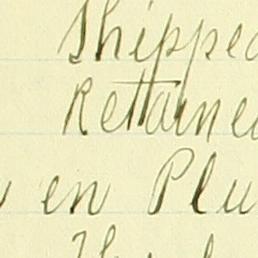 Shipped
Retained
en Plu